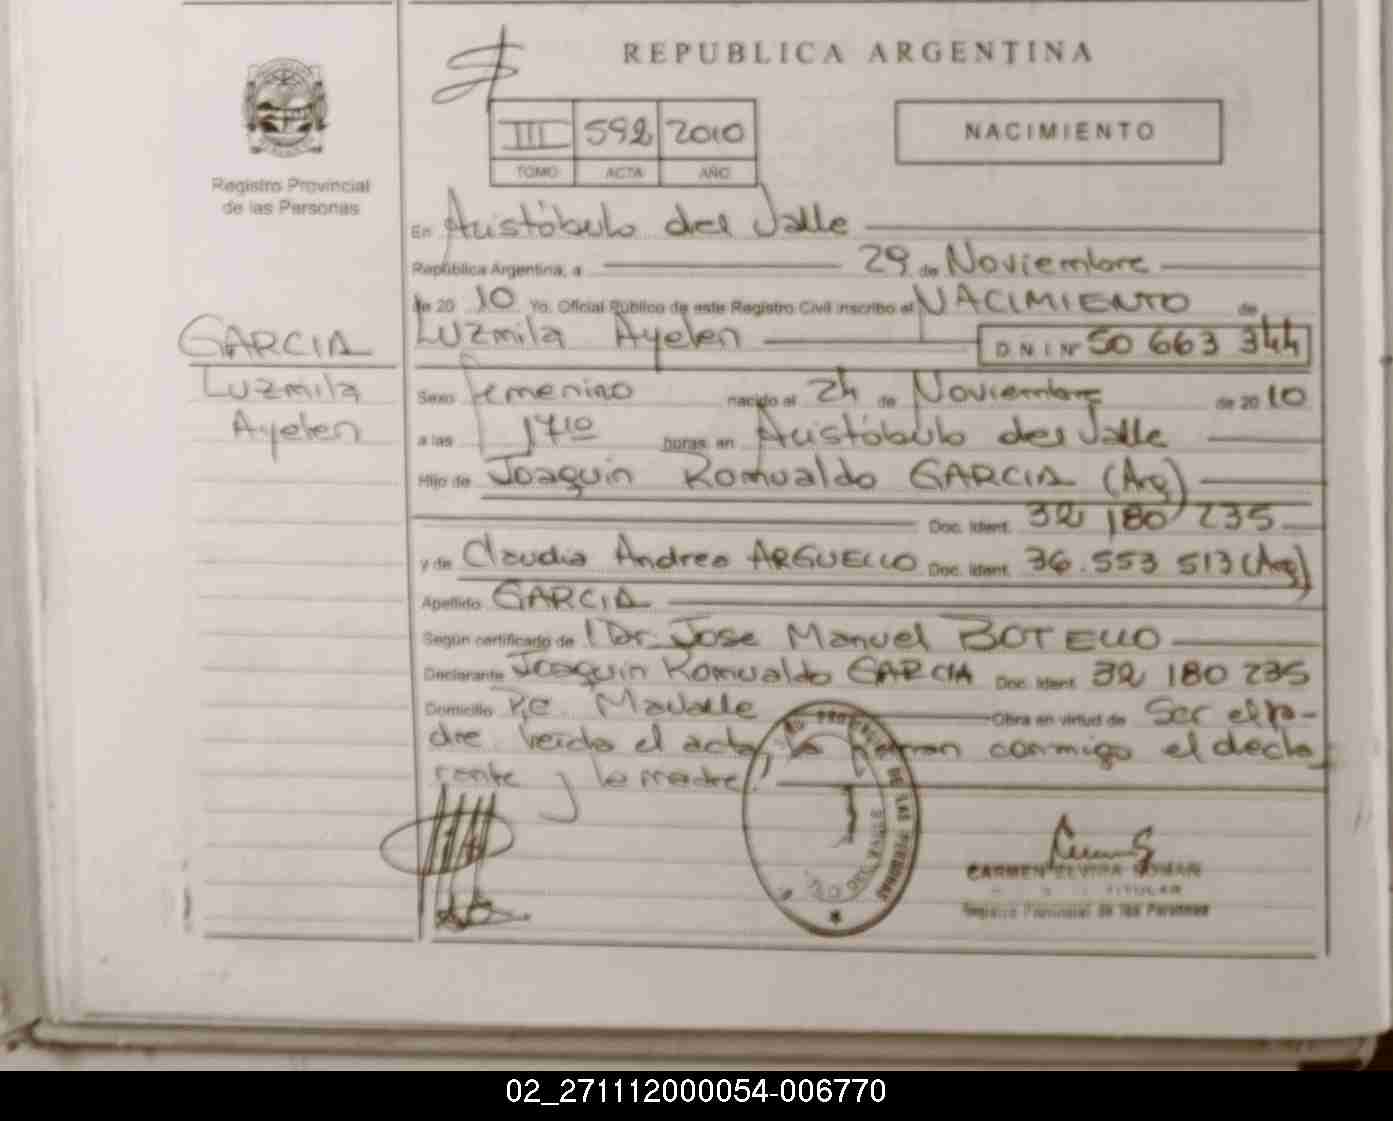 REPUBLICA ARGENTINA
III 592 2010
TOMO ACTA AÑO
NACIMIENTO
Registro Provincial
de las Personas
En Aristóbulo del Valle
República Argentina, a 29 de Noviembre
de 2010 Yo, Oficial Público de este Registro Civil inscribo el NACIMIENTO de
Luzmila Ayelen D N I Nº 50 663 344
GARCIA
Luzmila
Ayelen
Sexo femenino nacido el 24 de Noviembre de 2010
a las 1710 horas en Aristóbulo del Valle
Hijo de Joaquin Romualdo GARCIA (Arg)
Doc. Ident. 32 180 235
y de Claudia Andrea ARGUELLO Doc. Ident. 36.553 513 (Arg)
Apellido GARCIA
Según certificado de Dr. Jose Manuel BOTELLO
Declarante Joaquin Romualdo GARCIA Doc. Ident. 32 180 235
Domicilio Obra en virtud de Ser el pa-
dre leida el acta, la firman conmigo el decla
rante y la madre
DE LAS PERSONAS
CARMEN ELVIRA ROMAN
TITULAR
Registro Provincial de las Personas
02_271112000054-006770